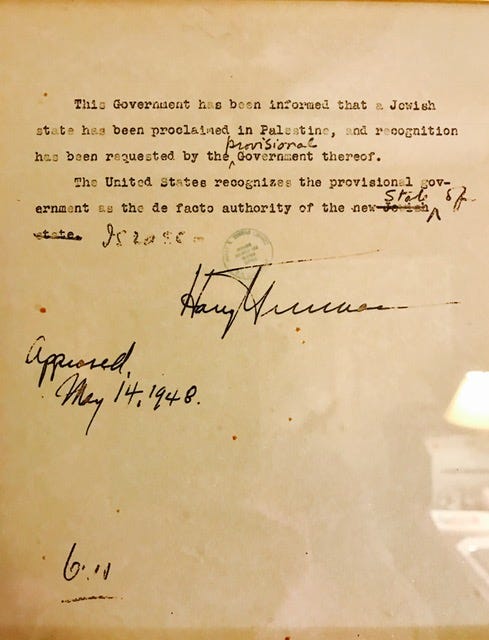 This Government has been informed that a Jewish
state has been proclaimed in Palestine, and recognition
provisional
has been requested by the Government thereof.
The United States recognizes the provisional gov-
State of
ernment as the de facto authority of the new Jewish
state. Israel
Harry Truman
Approved,
May 14, 1948.
6.11